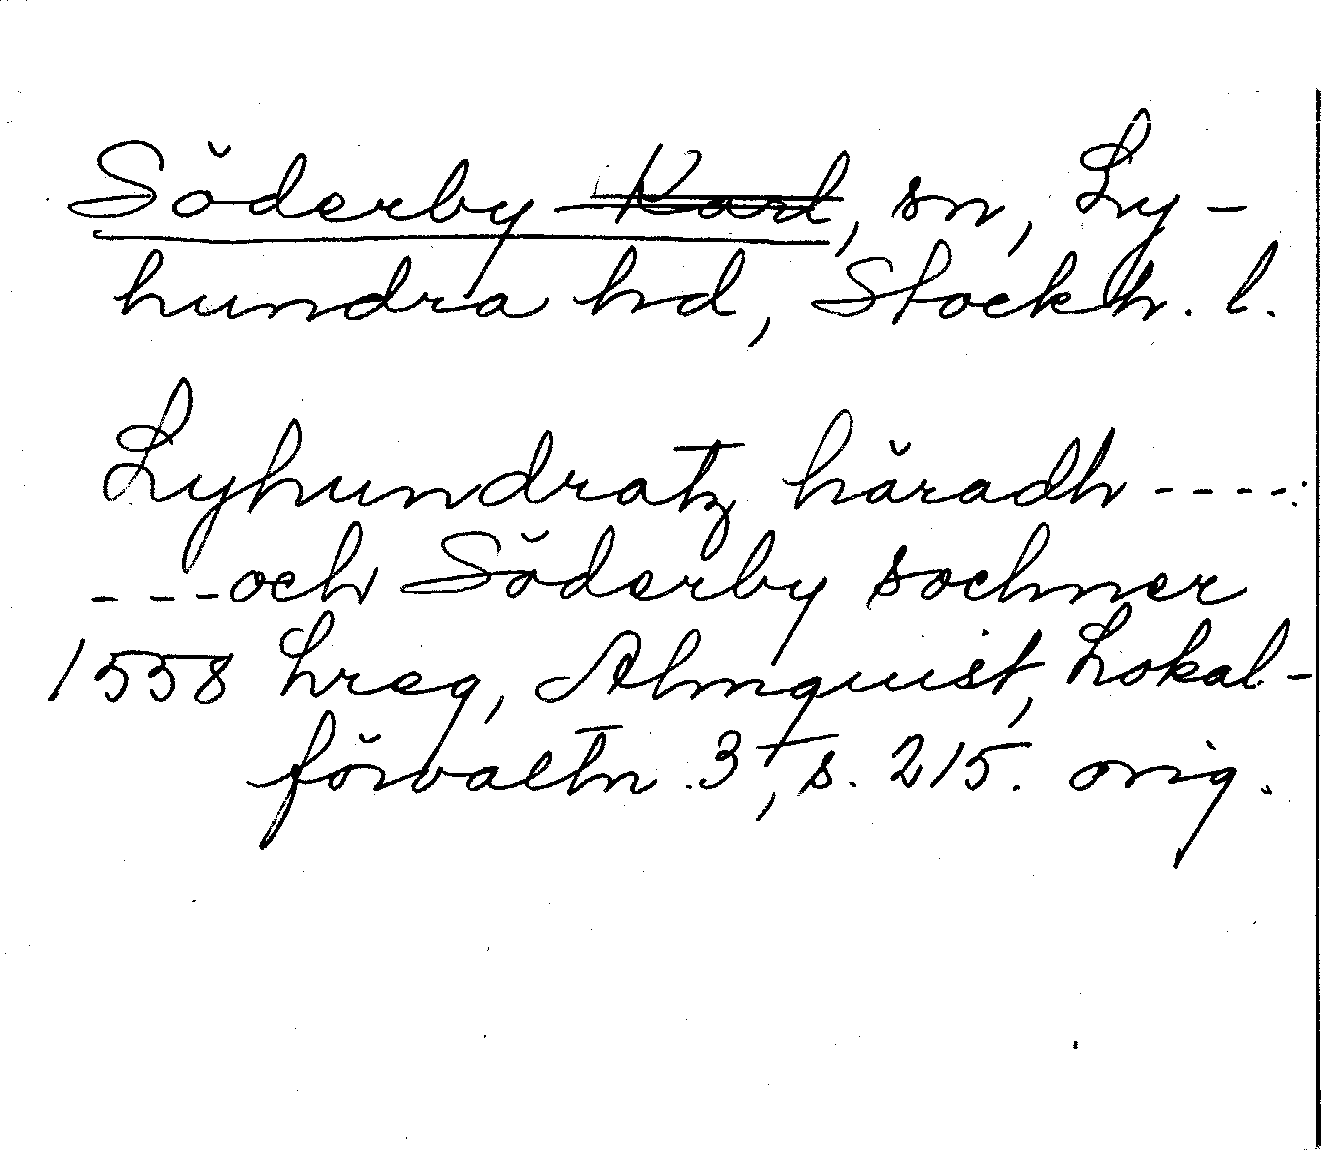 Söderby Karl, sn, Ly-
hundra hd, Stockh. l.
Lyhundratz häradh ----
---och Söderby sochner
1558 Lreg, Almquist, Lokal-
förvaltn. 3, s. 215. orig.